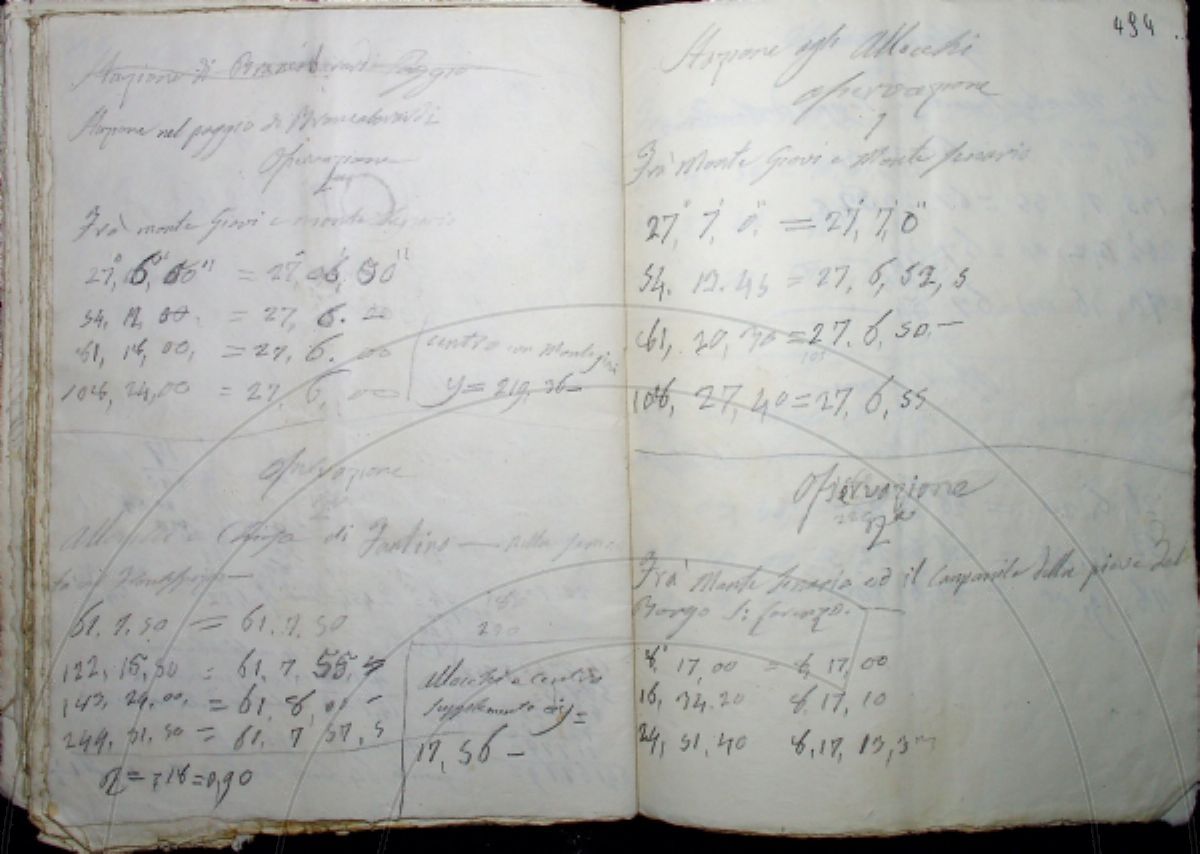 Stazione di Brancobardi Poggio
Stazione nel poggio di
Osservazione
Frà monte Giovi e monte Senario
= 27, 06, 00"
54, 12, 00 = 27, 6. 00
81, 18, 00, = 27, 6. 00
108, 24, 00 = 27, 6, 00
centro con Monte Giovi
y = 219, 36 —
Osservazione
Allocchi e di Fantino — nella
61. 7. 50 = 61. 7. 50
122, 15, 50 = 61. 7 55, 5
29, 00, = 61, 8, 00
31, 30 = 61, 7 57, 5
r = 7,18 = 0,90
Allocchi e centro
supplemento di y =
17, 56 —
494
Stazione agli Allocchi
osservazione
1
Frà Monte Giovi e Monte Senario
27,° 7,' 0," = 27, 7, 0"
54. 13. 45 = 27, 6, 52, 5
81, 20, 30 = 27. 6, 50. —
108, 27, 40 = 27, 6, 55
Osservazione
2ª
Frà Monte Senario ed il Campanile della pieve del
Borgo S: Lorenzo. —
8,° 17, 00 = 8, 17, 00
16, 34. 20 8. 17, 10
24, 51, 40 8, 17, 13, 3